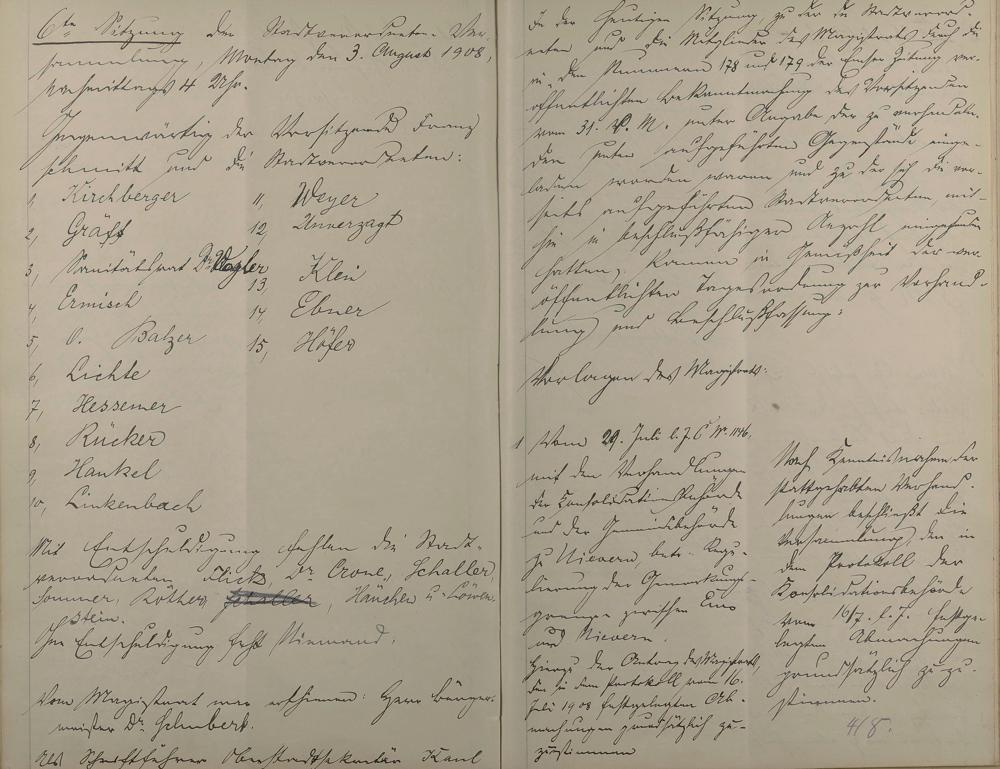 6te Sitzung der Stadtverordneten-Ver-
sammlung, Montag den 3. August 1908,
Nachmittags 4 Uhr.
Gegenwärtig der Vorsitzende Franz
Schmitt und die Stadtverordneten:
1, Kirchberger
2, Gräff
3, Sanitätsrat Dr. Vogler
4, Ermisch
5, O. Balzer
6, Lichte
7, Hessemer
8, Rücker
9, Hankel
10, Linkenbach
11, Weyer
12, Unverzagt
13, Klein
14, Ebner
15, Höfer
Mit Entschuldigung fehlen die Stadt-
verordneten Flick, Dr. Crone, Schaller,
Sommer, Röther, Schaller, Häuchen u. Löwen-
stein.
Ohne Entschuldigung fehlt Niemand.
Vom Magistrat war erschienen: Herr Bürger-
meister Dr. Schubert.
Als Schriftführer Oberstadtsekretär Kaul
In der heutigen Sitzung, zu der die Stadtverord-
neten und die Mitglieder des Magistrats durch die
in den Nummern 178 und 179 der Emser Zeitung ver-
öffentlichten Bekanntmachung des Vorsitzenden
vom 31. v. M. unter Angabe der zu verhandeln-
den unten aufgeführten Gegenstände einge-
laden worden waren und zu der sich die vor-
seits aufgeführten Stadtverordneten, mit-
hin in beschlußfähiger Anzahl eingefunden
hatten, kamen in Gemäßheit der ver-
öffentlichten Tagesordnung zur Verhand-
lung und Beschlußfassung:
Vorlagen des Magistrats:
1 Vom 29. Juli l. J. C No. 1146,
mit den Verhandlungen
der Konsolidationsbehörde
und der Gemeindebehörde
zu Nievern, betr. Regu-
lierung der Gemarkungs-
grenze zwischen Ems
und Nievern.
Hierzu der Antrag des Magistrats,
den in dem Protokoll vom 16.
Juli 1908 festgelegten Ab-
machungen grundsätzlich zu-
zustimmen
Nach Kenntnisnahme der
stattgehabten Verhand-
lungen beschließt die
Versammlung, den in
dem Protokoll der
Konsolidationsbehörde
vom 16/7. l. J. festge-
legten Abmachungen
grundsätzlich zuzu-
stimmen.
4/8.